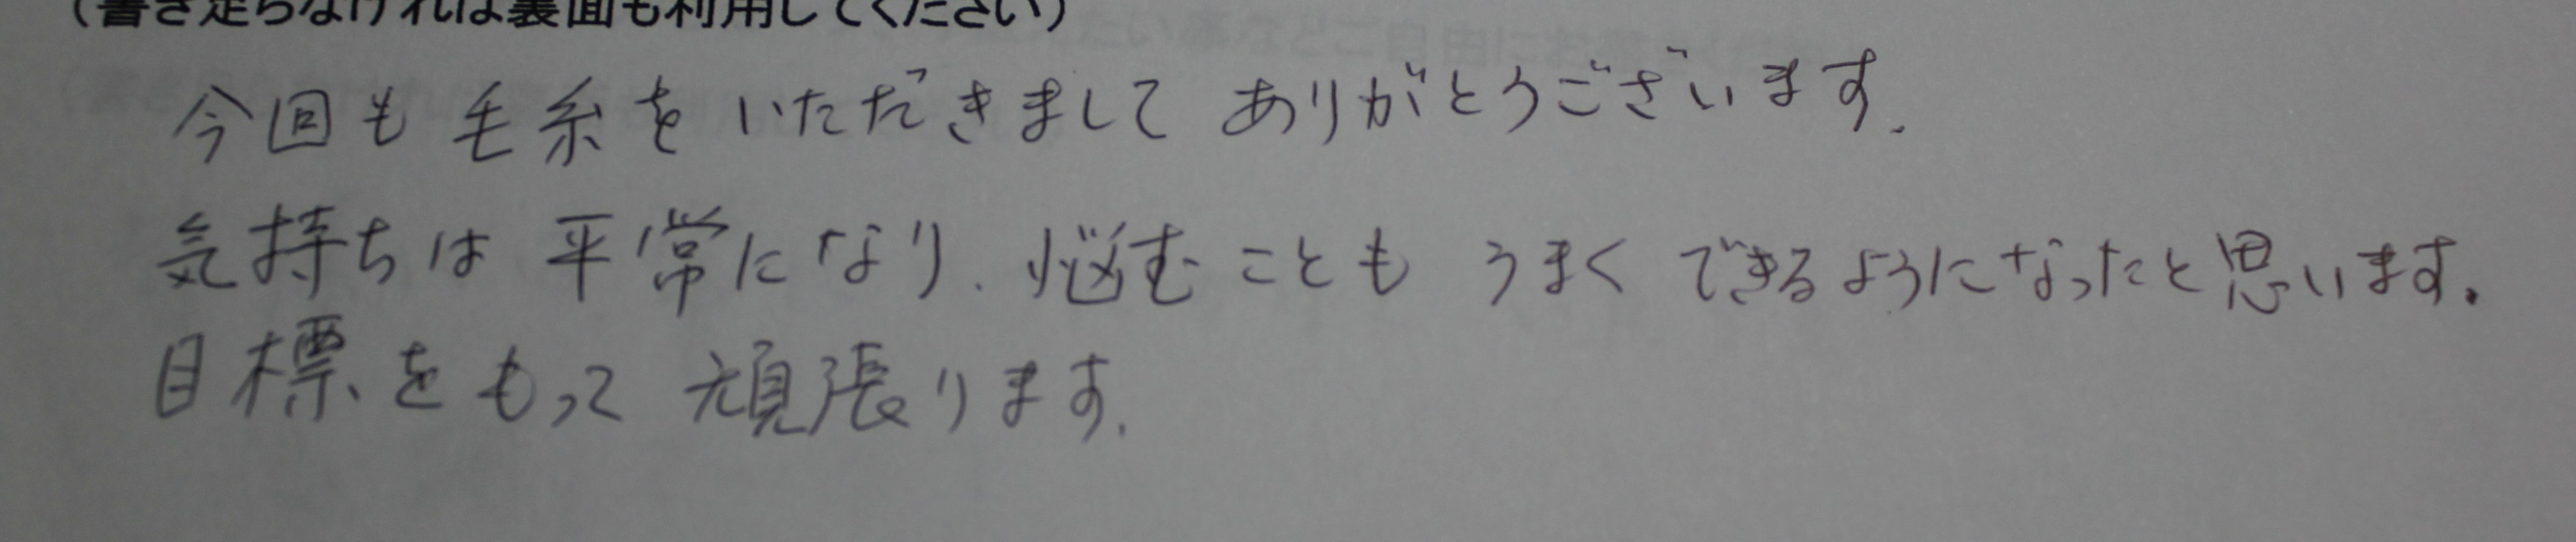 （書き足らなければ裏面も利用してください）
今回も毛糸をいただきましてありがとうございます.
気持ちは平常になり.悩むこともうまくできるようになったと思います.
目標をもって頑張ります.